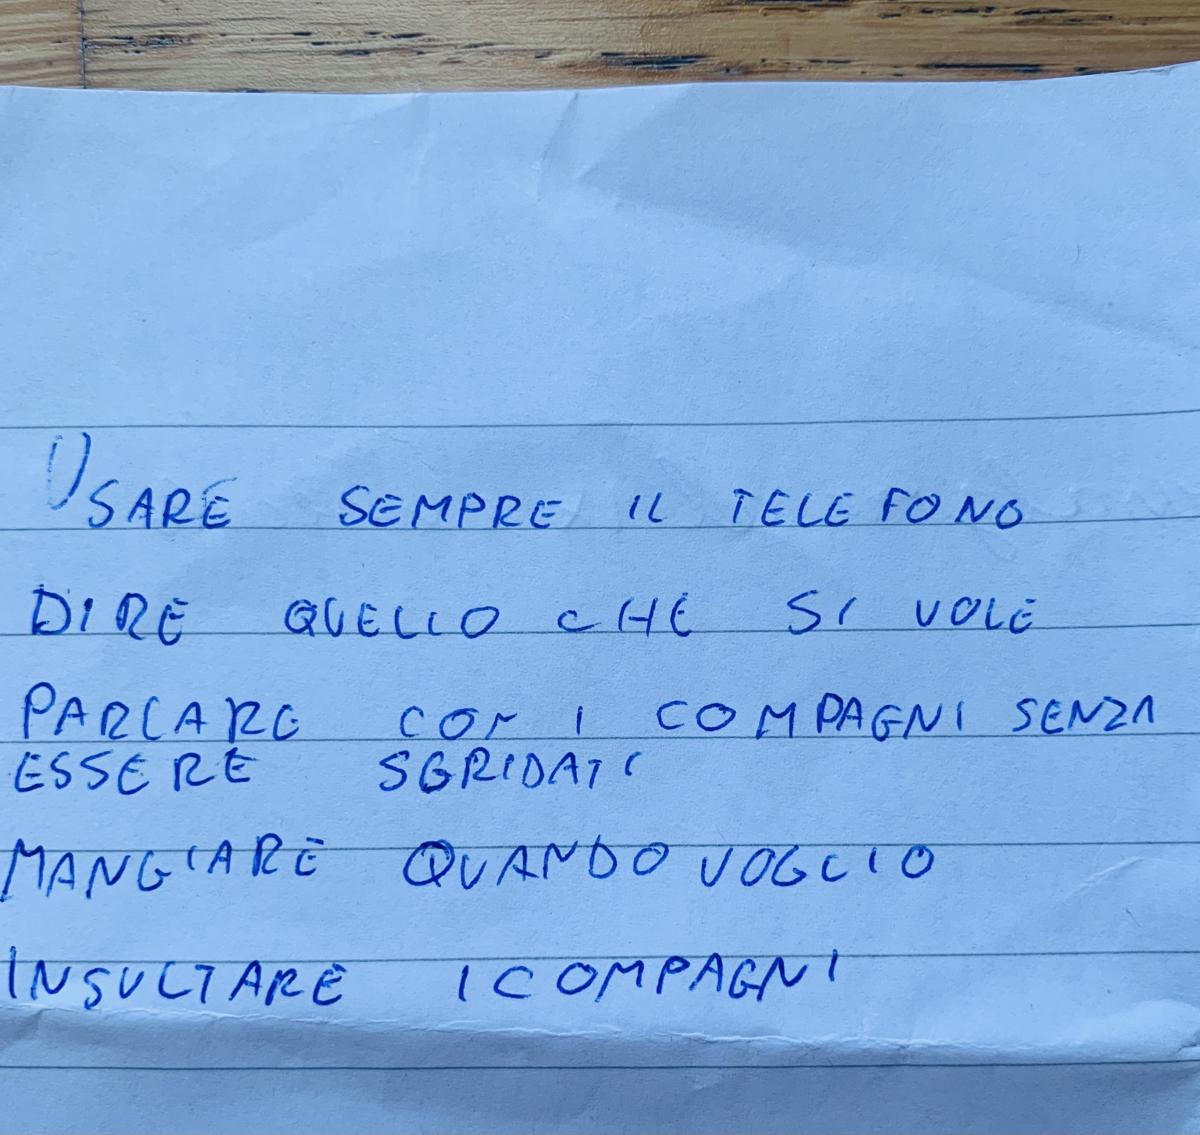 USARE SEMPRE IL TELEFONO
DIRE QUELLO CHE SI VOLE
PARLARE CON I COMPAGNI SENZA
ESSERE SGRIDATI
MANGIARE QUANDO VOGLIO
INSULTARE I COMPAGNI